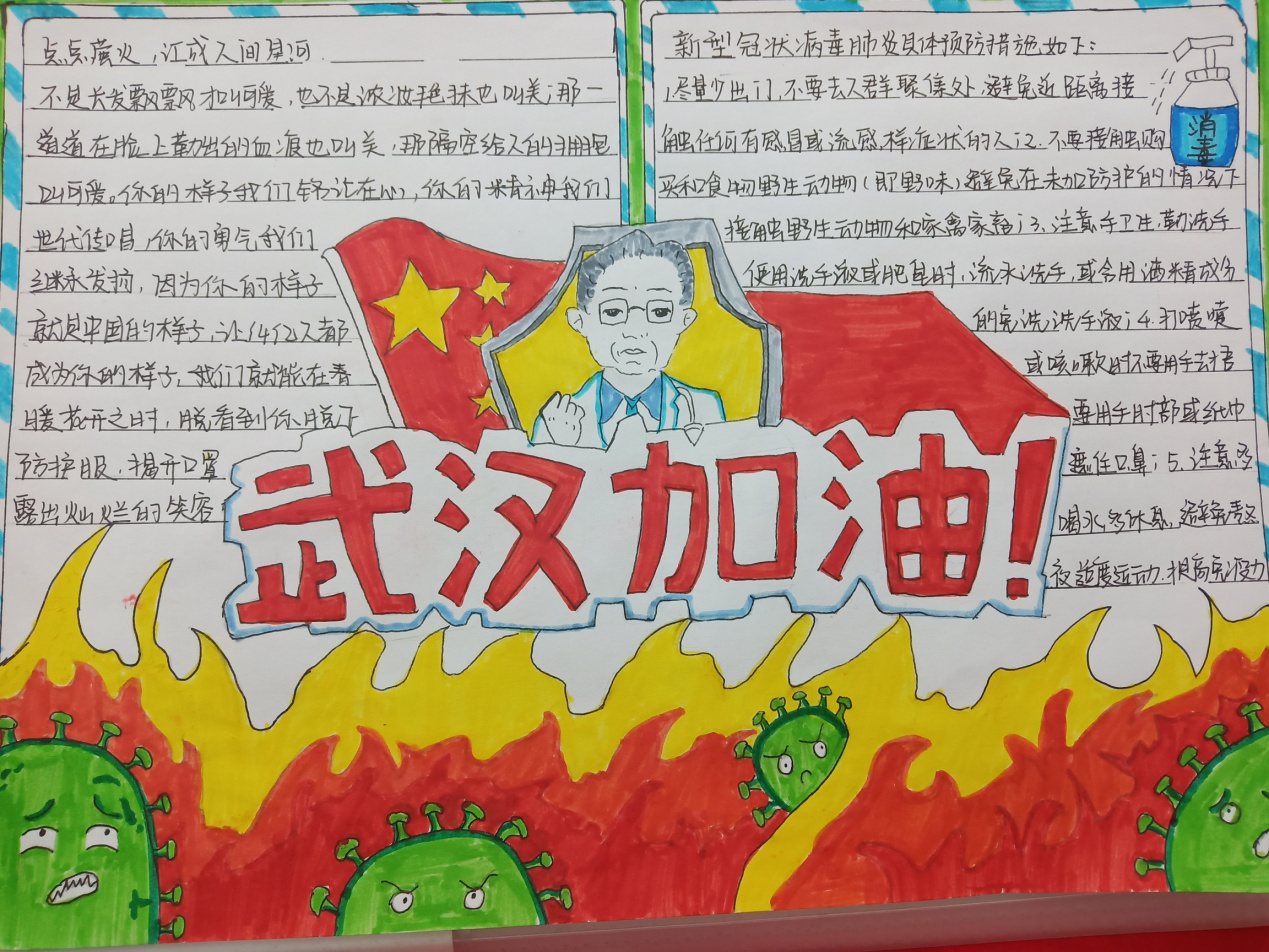 点点萤火，让成人间星河
不是长发飘飘才叫可爱，也不是浓妆艳抹也叫美；那一
道道在脸上勒出的血痕也叫美，那隔空给人的拥抱
叫可爱。你的样子我们铭记在心，你的精神我们
世代传唱，你的勇气我们
继承发扬，因为你的样子
就是中国的样子，让14亿人都
成为你的样子，我们就能在春
暖花开之时，脱看到你脱下
防护服，揭开口罩
露出灿烂的笑容
新型冠状病毒肺炎具体预防措施如下：
1.尽量少出门，不要去人群聚集处，避免近距离接
触任何有感冒或流感样症状的人；2.不要接触购
买和食物野生动物（即野味）避免在未加防护的情况下
接触野生动物和家禽家畜；3.注意手卫生，勤洗手
使用洗手液或肥皂时，流水洗手，或含用酒精成分
的免洗洗手液；4.打喷嚏
或咳嗽时不要用手去捂
要用手肘部或纸巾
遮住口鼻；5.注意多
喝水多休息，避免熬
夜适度运动.提高免疫力
消毒
武汉加油！